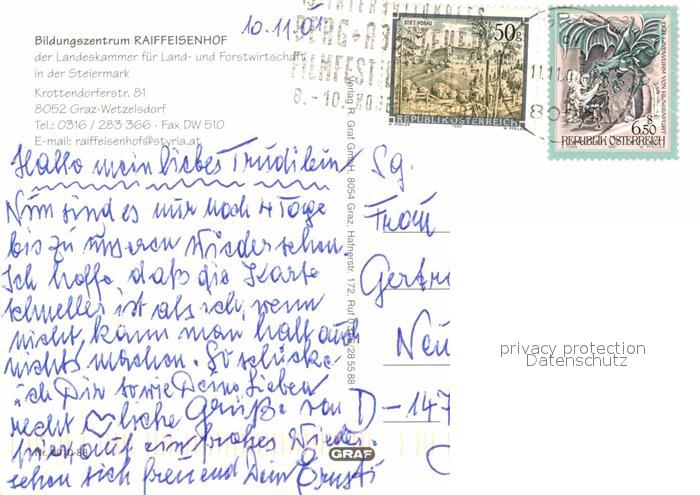 10.11.01
Bildungszentrum RAIFFEISENHOF
der Landeskammer für Land- und Forstwirtschaft
in der Steiermark
Krottendorferstr. 81
8052 Graz-Wetzelsdorf
Tel.: 0316 / 283 366 · Fax DW 510
E-mail: raiffeisenhof@styria.at
INTERNATIONALES
BERG +
FILMFEST
8.-10. NO
STIFT VORAU
50g
REPUBLIK ÖSTERREICH
11.11.0
80
DER LINDWURM VON KLAGENFURT
S
6.50
REPUBLIK ÖSTERREICH
Hallo mein liebes Trudilein
Nun sind es nur noch 4 Tage
bis zu unserem Wiedersehen.
Ich hoffe, daß die Karte
schneller ist als ich, wenn
nicht, kann man halt auch
nichts machen. So schicke
ich Dir sowie Deine Lieben
recht ♡liche Grüße. von
Hier auf ein frohes Wieder-
sehen sich freuend Dein Ernsti
Verlag R. Graf GmbH, 8054 Graz, Hafnerstr. 172, Ruf 28 55 88
GRAF
Sg.
Frau
Gertr
Neu
D-147
privacy protection
Datenschutz